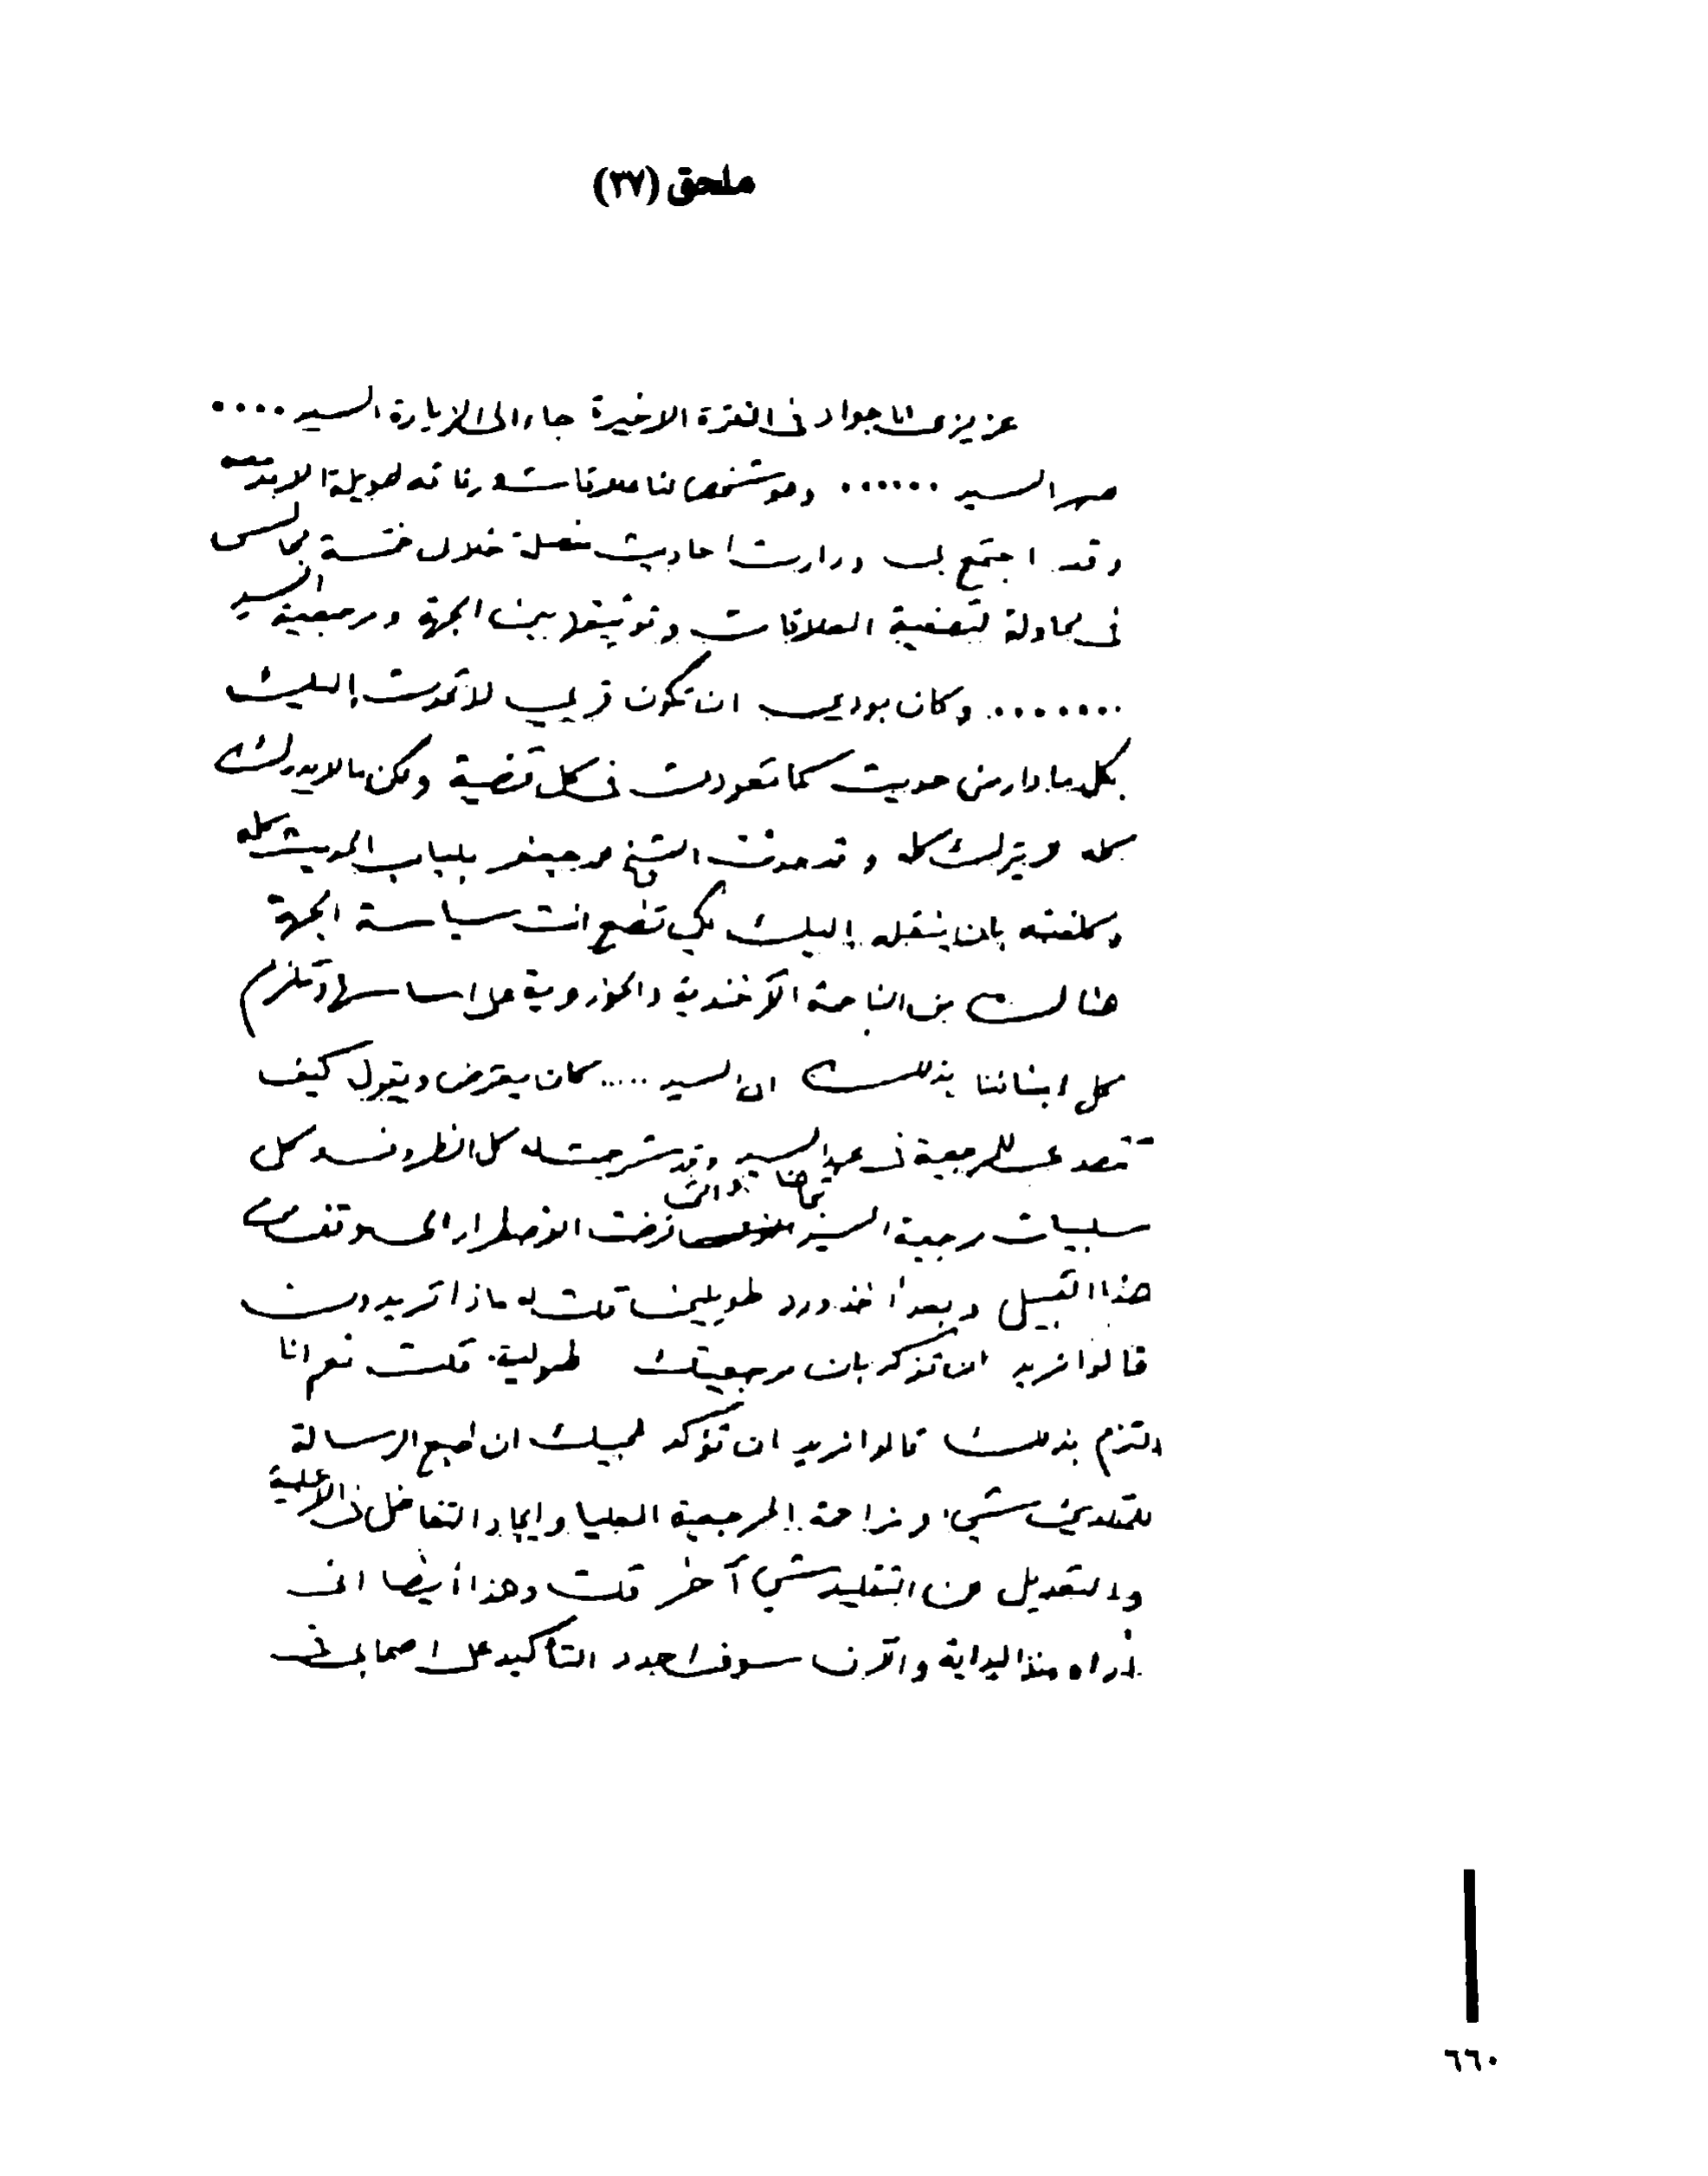 ملحق (٣٧)
عزيزي ابا جواد في الفترة الاخيرة جاء الى الزيارة السيد ....
صهر السيد ...... وهو شخص لنا علاقات ورفاقه طويلة الامد معه
وقد اجتمع بي ودارت احاديث مفصلة خلال خمسة مجالس
في محاولة لتصفية العلاقات وتوثيقها بين الجهة ومرجعية السيد
....... وكان بودي ان تكون قربي لأتحدث إليك
بكل ما دار من حديث كما تعودت في كل قضية ولكن ما لا يدرك
كله لا يترك كله وقد حدثت الشيخ محمد جعفر بلباب الحديث كله
وكلفته بان ينقله إليك لكي تضع انت سياسة الجهة
هنالك من الناحية الآخندية والحوزوية على اساسها وتلزم
كل ابنائنا بذلك ان السيد ..... كان يعترض ويقول كيف
تتصدى للمرجعية في عهد السيد وقد شرحت له كل الظروف وكل
سلبيات مرجعية السيد تجاهنا والتي فرضت الاضطرار الى موقف من
هذا القبيل وبعد أخذ ورد طويلين قلت له ماذا تريدون
قالوا نريد ان تذكر بان مرجعيتك طولية. قلت نعم انا
التزم بذلك قالوا نريد ان تؤكد لمحبيك ان طبع الرسالة
للمقلدين شيء ومزاحمة المرجعية العليا وايجاد التفاضل في الاعلمية
والتعديل من التقليد شيء آخر قلت وهذا أيضا انني
اراه منذ البداية والآن سوف اجدد التأكيد على اصحابي في
٦٦٠